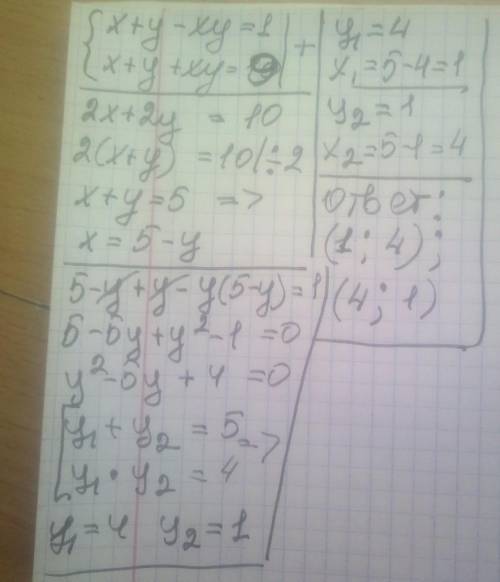 x+y-xy=1 | +
x+y+xy=9
2x+2y = 10
2(x+y) = 10 |÷2
x+y=5 =>
x=5-y
5-y+y-y(5-y)=1
5-5y+y²-1=0
y²-5y+4=0
y₁+y₂=5 =>
y₁·y₂=4
y₁=4 y₂=1
y₁=4
x₁=5-4=1
y₂=1
x₂=5-1=4
Ответ:
(1; 4);
(4; 1)